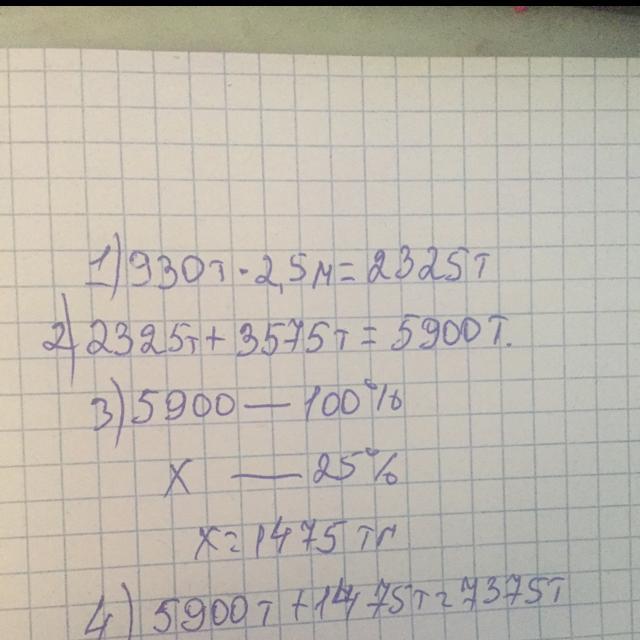 1) 930т · 2,5м = 2325т
2) 2325т + 3575т = 5900т.
3) 5900 — 100%
x — 25%
x = 1475 тг
4) 5900т + 1475т = 7375т